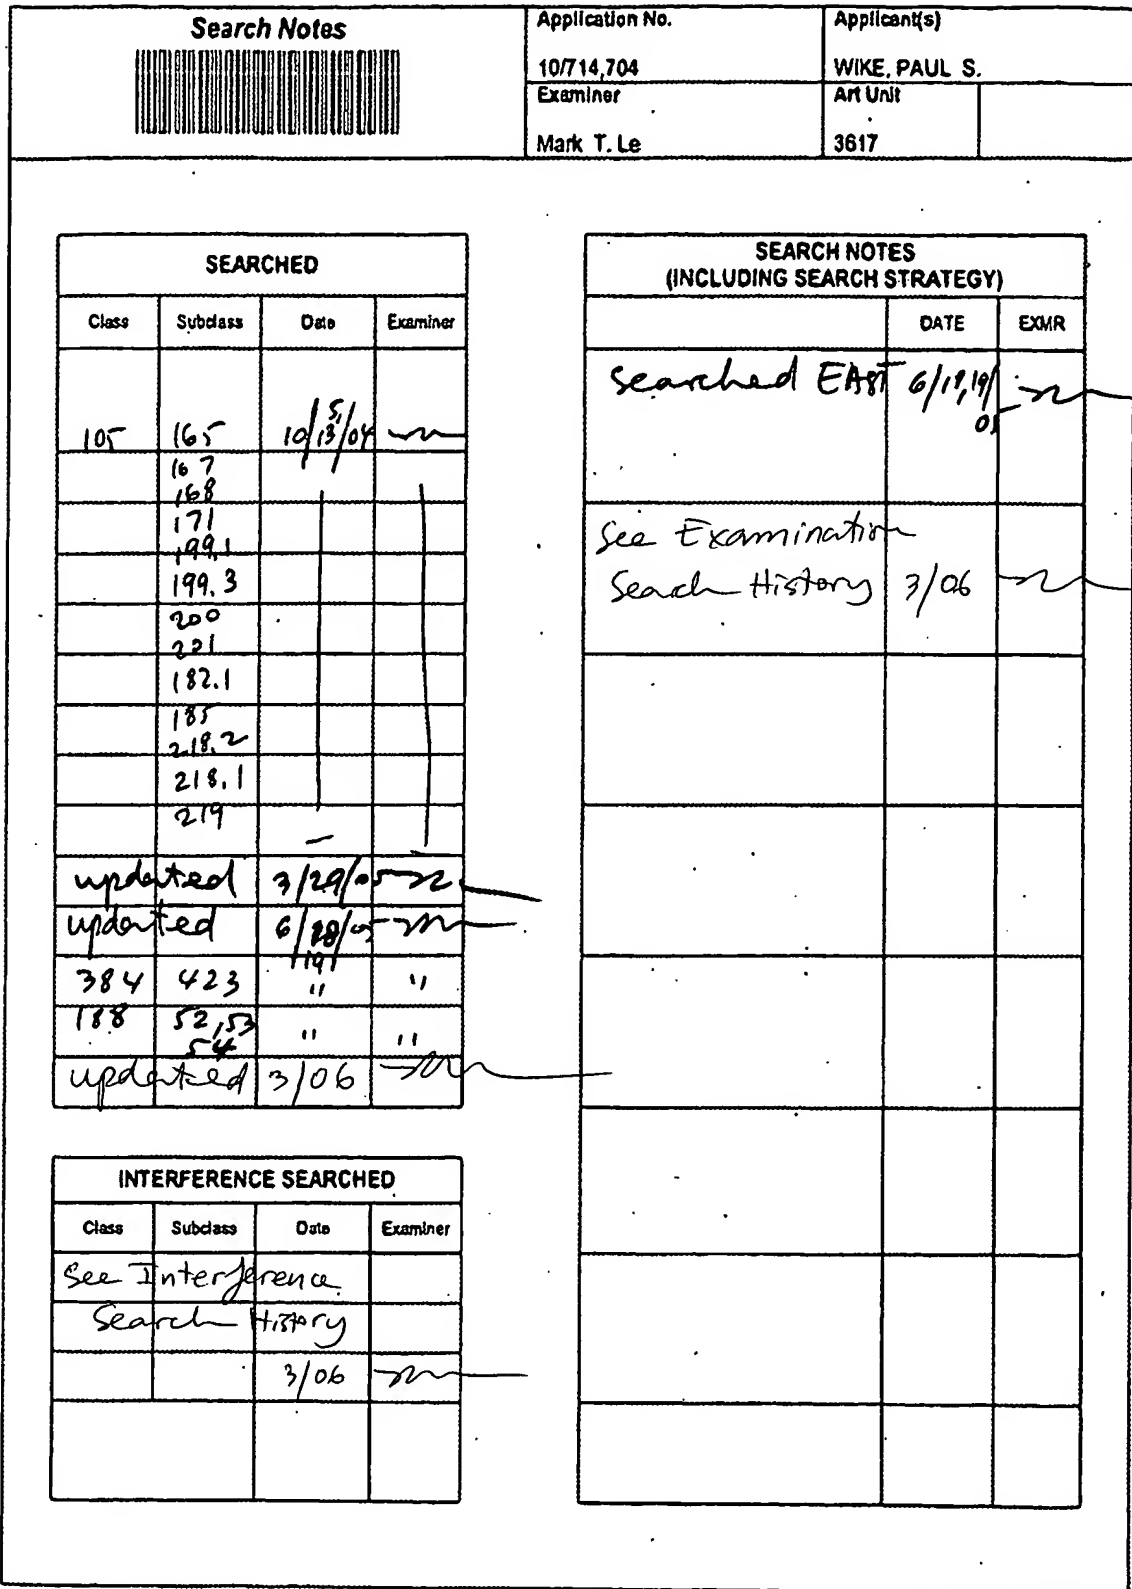 Search Notes
Application No.
10/714,704
Applicant(s)
WIKE, PAUL S.
Examiner
Mark T. Le
Art Unit
3617
SEARCHED
Class Subclass Date Examiner
105 165 10/5,13/04
167
168
171
199.1
199.3
200
201
182.1
185
218.2
218.1
219
updated 3/29/05
updated 6/18/05
19
384 423 " "
188 52,53 " "
54
updated 3/06
INTERFERENCE SEARCHED
Class Subclass Date Examiner
See Interference
Search History
3/06
SEARCH NOTES
(INCLUDING SEARCH STRATEGY)
DATE EXMR
searched EAST 6/18,19/
05
See Examination
Search History 3/06